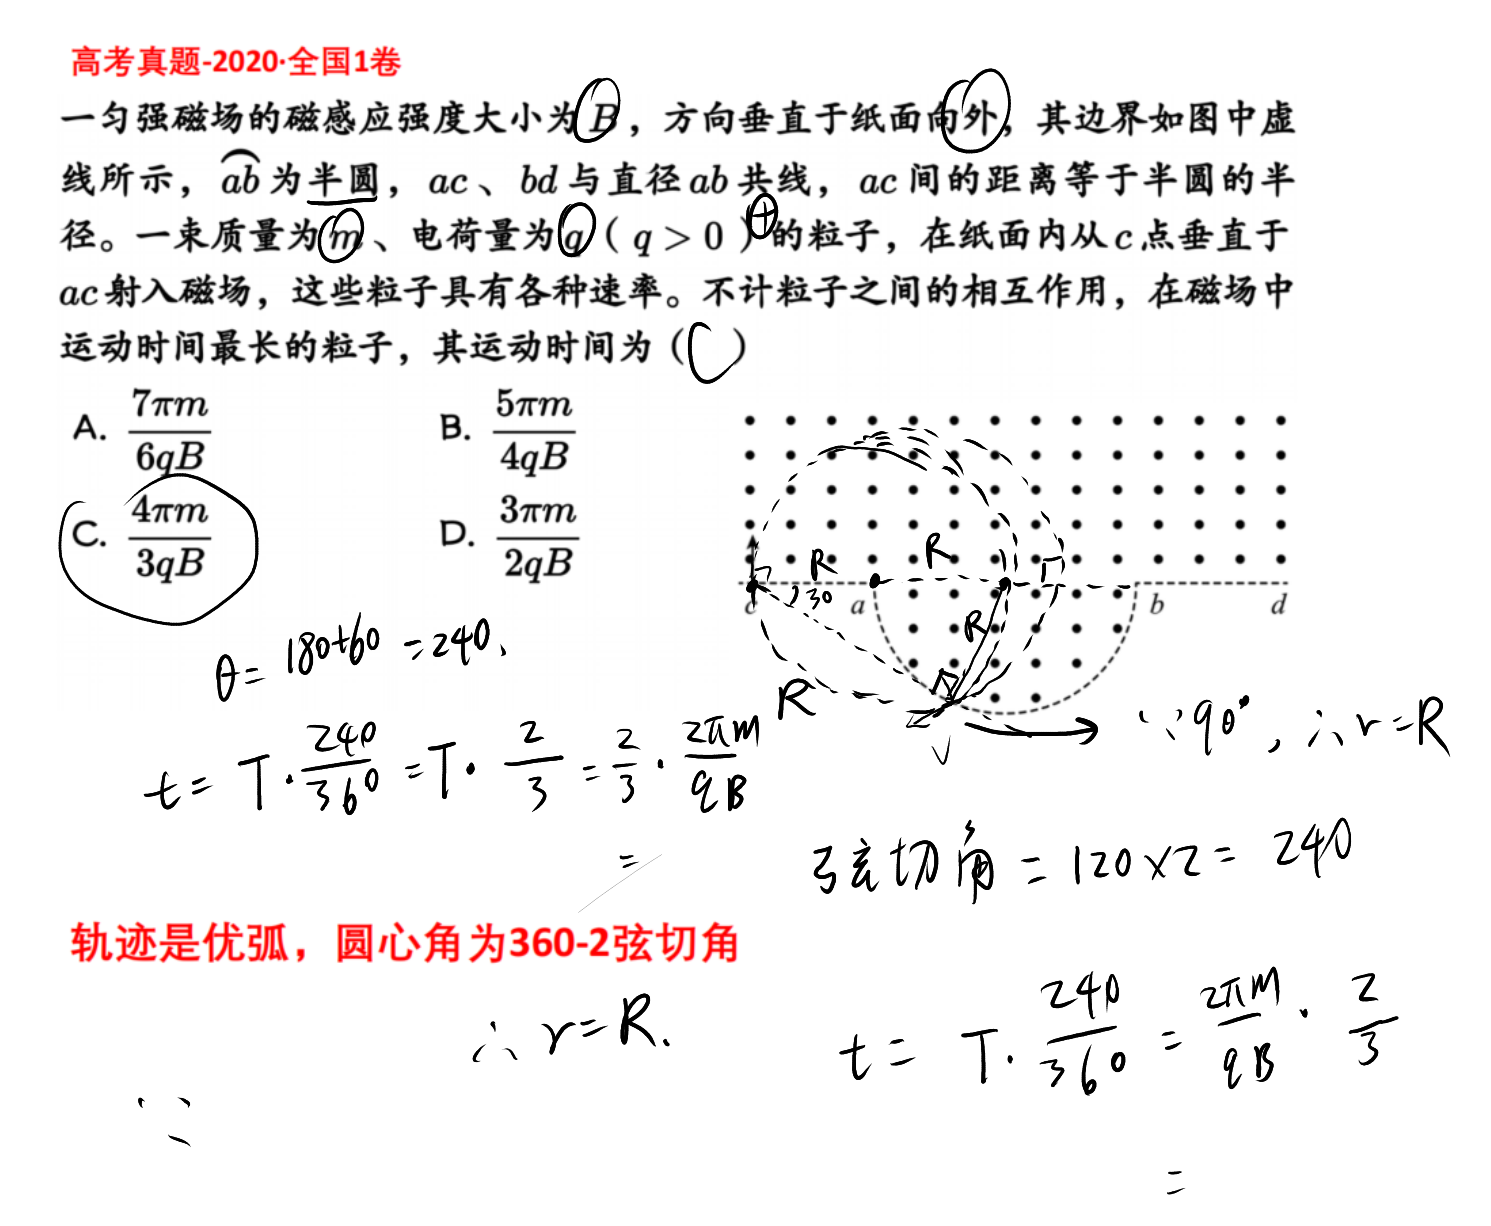 高考真题-2020·全国1卷
一匀强磁场的磁感应强度大小为 B，方向垂直于纸面向外，其边界如图中虚
线所示，ab 为半圆，ac、bd 与直径 ab 共线，ac 间的距离等于半圆的半
径。一束质量为 m、电荷量为 q（q > 0）的粒子，在纸面内从 c 点垂直于
+
ac 射入磁场，这些粒子具有各种速率。不计粒子之间的相互作用，在磁场中
运动时间最长的粒子，其运动时间为（C）
A. 7πm/6qB
B. 5πm/4qB
C. 4πm/3qB
D. 3πm/2qB
R
R
30
c
a
b
d
R
R
θ = 180+60 = 240.
t = T · 240/360 = T · 2/3 = 2/3 · 2πm/qB
=
V
∵ 90°, ∴ r = R
弦切角 = 120 × 2 = 240
轨迹是优弧，圆心角为360-2弦切角
∴ r = R.
t = T · 240/360 = 2πm/qB · 2/3
=
∵